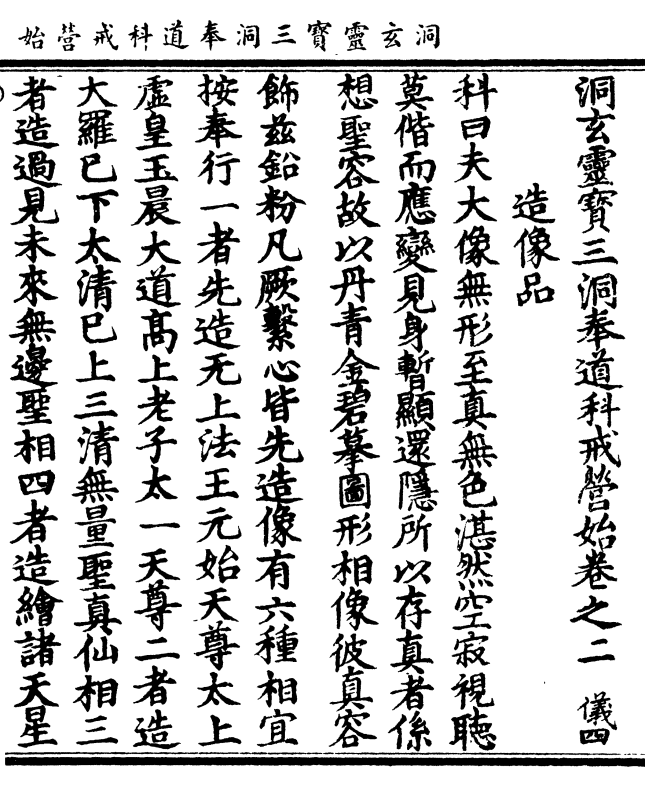 洞玄靈寶三洞奉道科戒營始
洞玄靈寶三洞奉道科戒營始卷之二 儀四
造像品
科曰夫大像無形至真無色湛然空寂視聽
莫偕而應變見身暫顯還隱所以存真者係
想聖容故以丹青金碧摹圖形相像彼真容
飾兹鉛粉凡厥繫心皆先造像有六種相宜
按奉行一者先造无上法王元始天尊太上
虛皇玉晨大道高上老子太一天尊二者造
大羅巳下太清巳上三清無量聖真仙相三
者造過見未來無邊聖相四者造繪諸天星